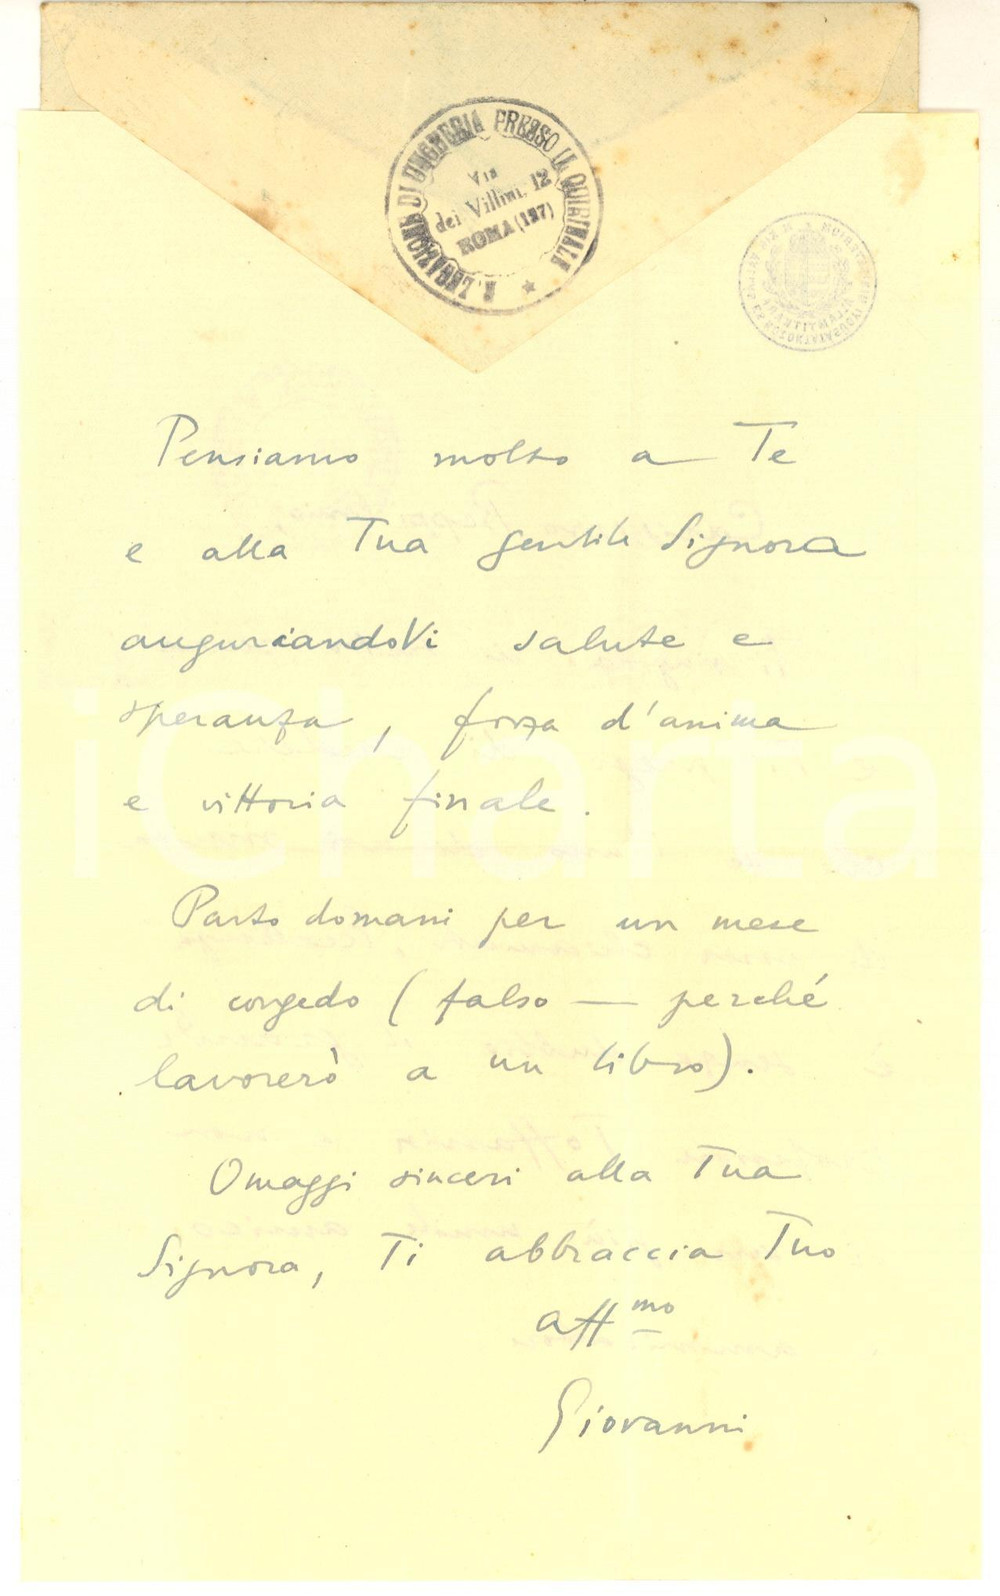 R. LEGAZIONE DI UNGHERIA PRESSO IL QUIRINALE
Via
dei Villini, 12
ROMA (127)
Pensiamo molto a Te
e alla Tua gentile Signora
augurandoVi salute e
speranza, forza d'anima
e vittoria finale.
Parto domani per un mese
di congedo (falso — perché
lavorerò a un libro).
Omaggi sinceri alla Tua
Signora, Ti abbraccia Tuo
aff mo
Giovanni
iCharta